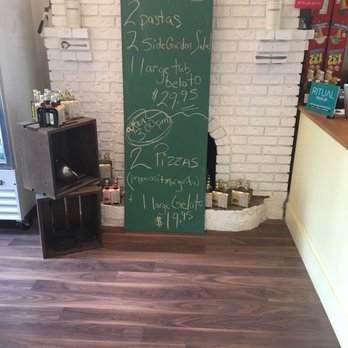 2 pastas
2 Side Garden Salad
1 large tub
Gelato
$29.95
after
3:00pm
2 Pizzas
+ 1 large Gelato
$19.95
RITUAL